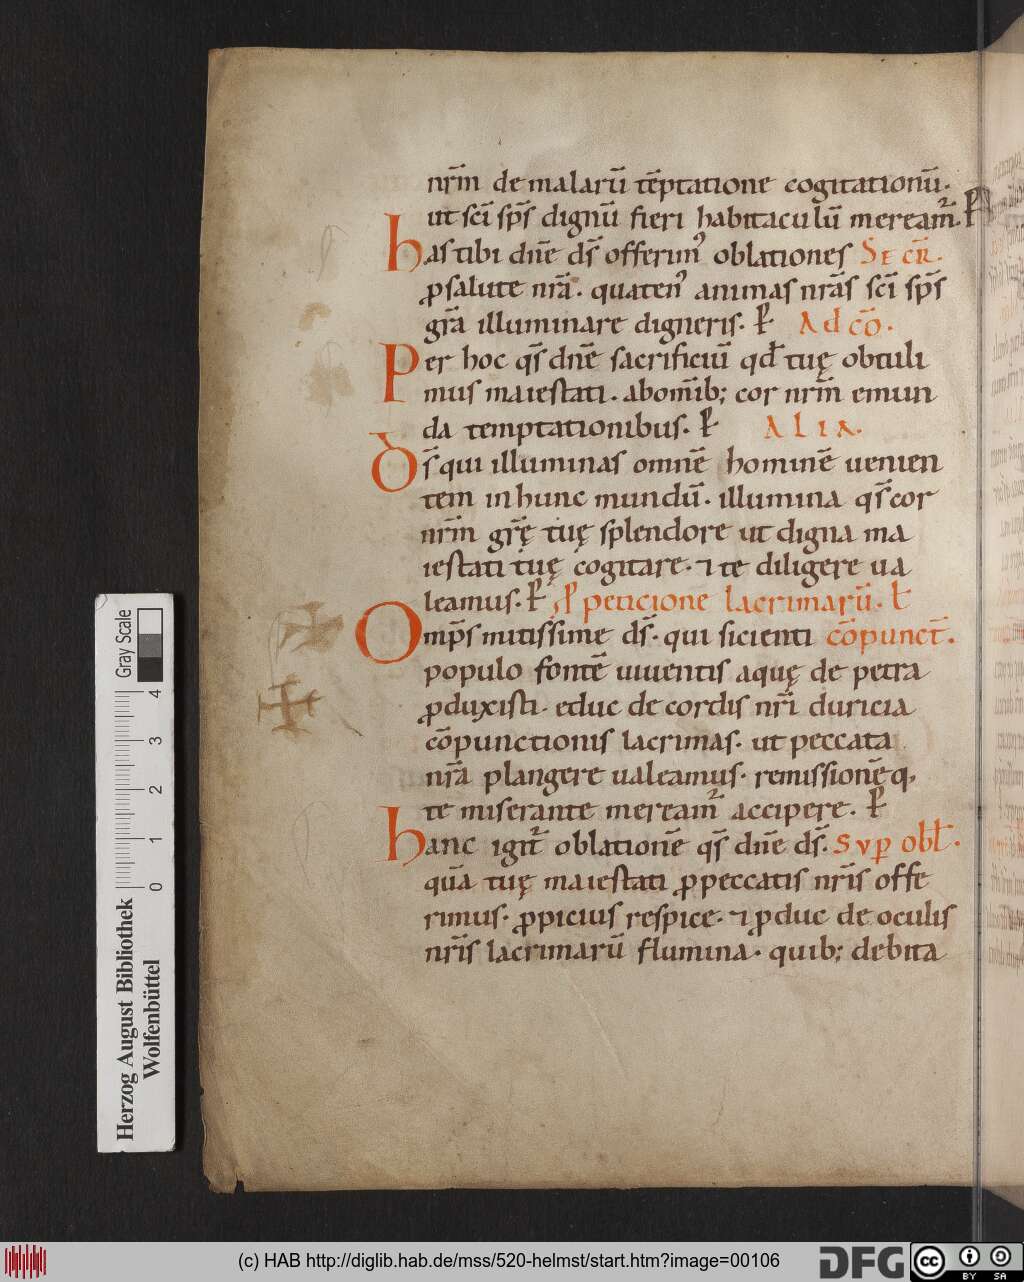 nr̄m de malarū tēptatione cogitationū.
ut sc̄i sp̄s dignū fieri habitaculū meream̄. P̄
Has tibi dn̄e ds̄ offerim⁹ oblationes SECR̄.
ꝓ salute nr̄a. quaten⁹ animas nr̄as sc̄i sp̄s
gr̄a illuminare digneris. P̄ Ad cō.
Per hoc qs̄ dn̄e sacrificiū qd̄ tuę obtuli
mus maiestati. ab om̄ib; cor nr̄m emun
da temptationibus. P̄ ALIA.
Ds̄ qui illuminas omnē hominē uenien
tem in hunc mundū. illumina qs̄ cor
nr̄m gr̄ę tuę splendore ut digna ma
iestati tuę cogitare. ⁊ te diligere ua
leamus. P̄ P̄ peticione lacrimarū. ł
Omp̄s mitissime ds̄. qui sicienti cōpunct̄.
populo fontē uiuentis aquę de petra
ꝓduxisti. educ de cordis nr̄i duricia
cōpunctionis lacrimas. ut peccata
nr̄a plangere ualeamus. remissionēq,
te miserante meream̄ accipere. P̄
Hanc igit̄ oblationē qs̄ dn̄e ds̄. Sup obł.
quā tuę maiestati ꝓ peccatis nr̄is offe
rimus. ꝓpicius respice. ⁊ ꝓduc de oculis
nr̄is lacrimarū flumina. quib; debita
Gray Scale
0 1 2 3 4
Herzog August Bibliothek
Wolfenbüttel
(c) HAB http://diglib.hab.de/mss/520-helmst/start.htm?image=00106
DFG
cc BY SA